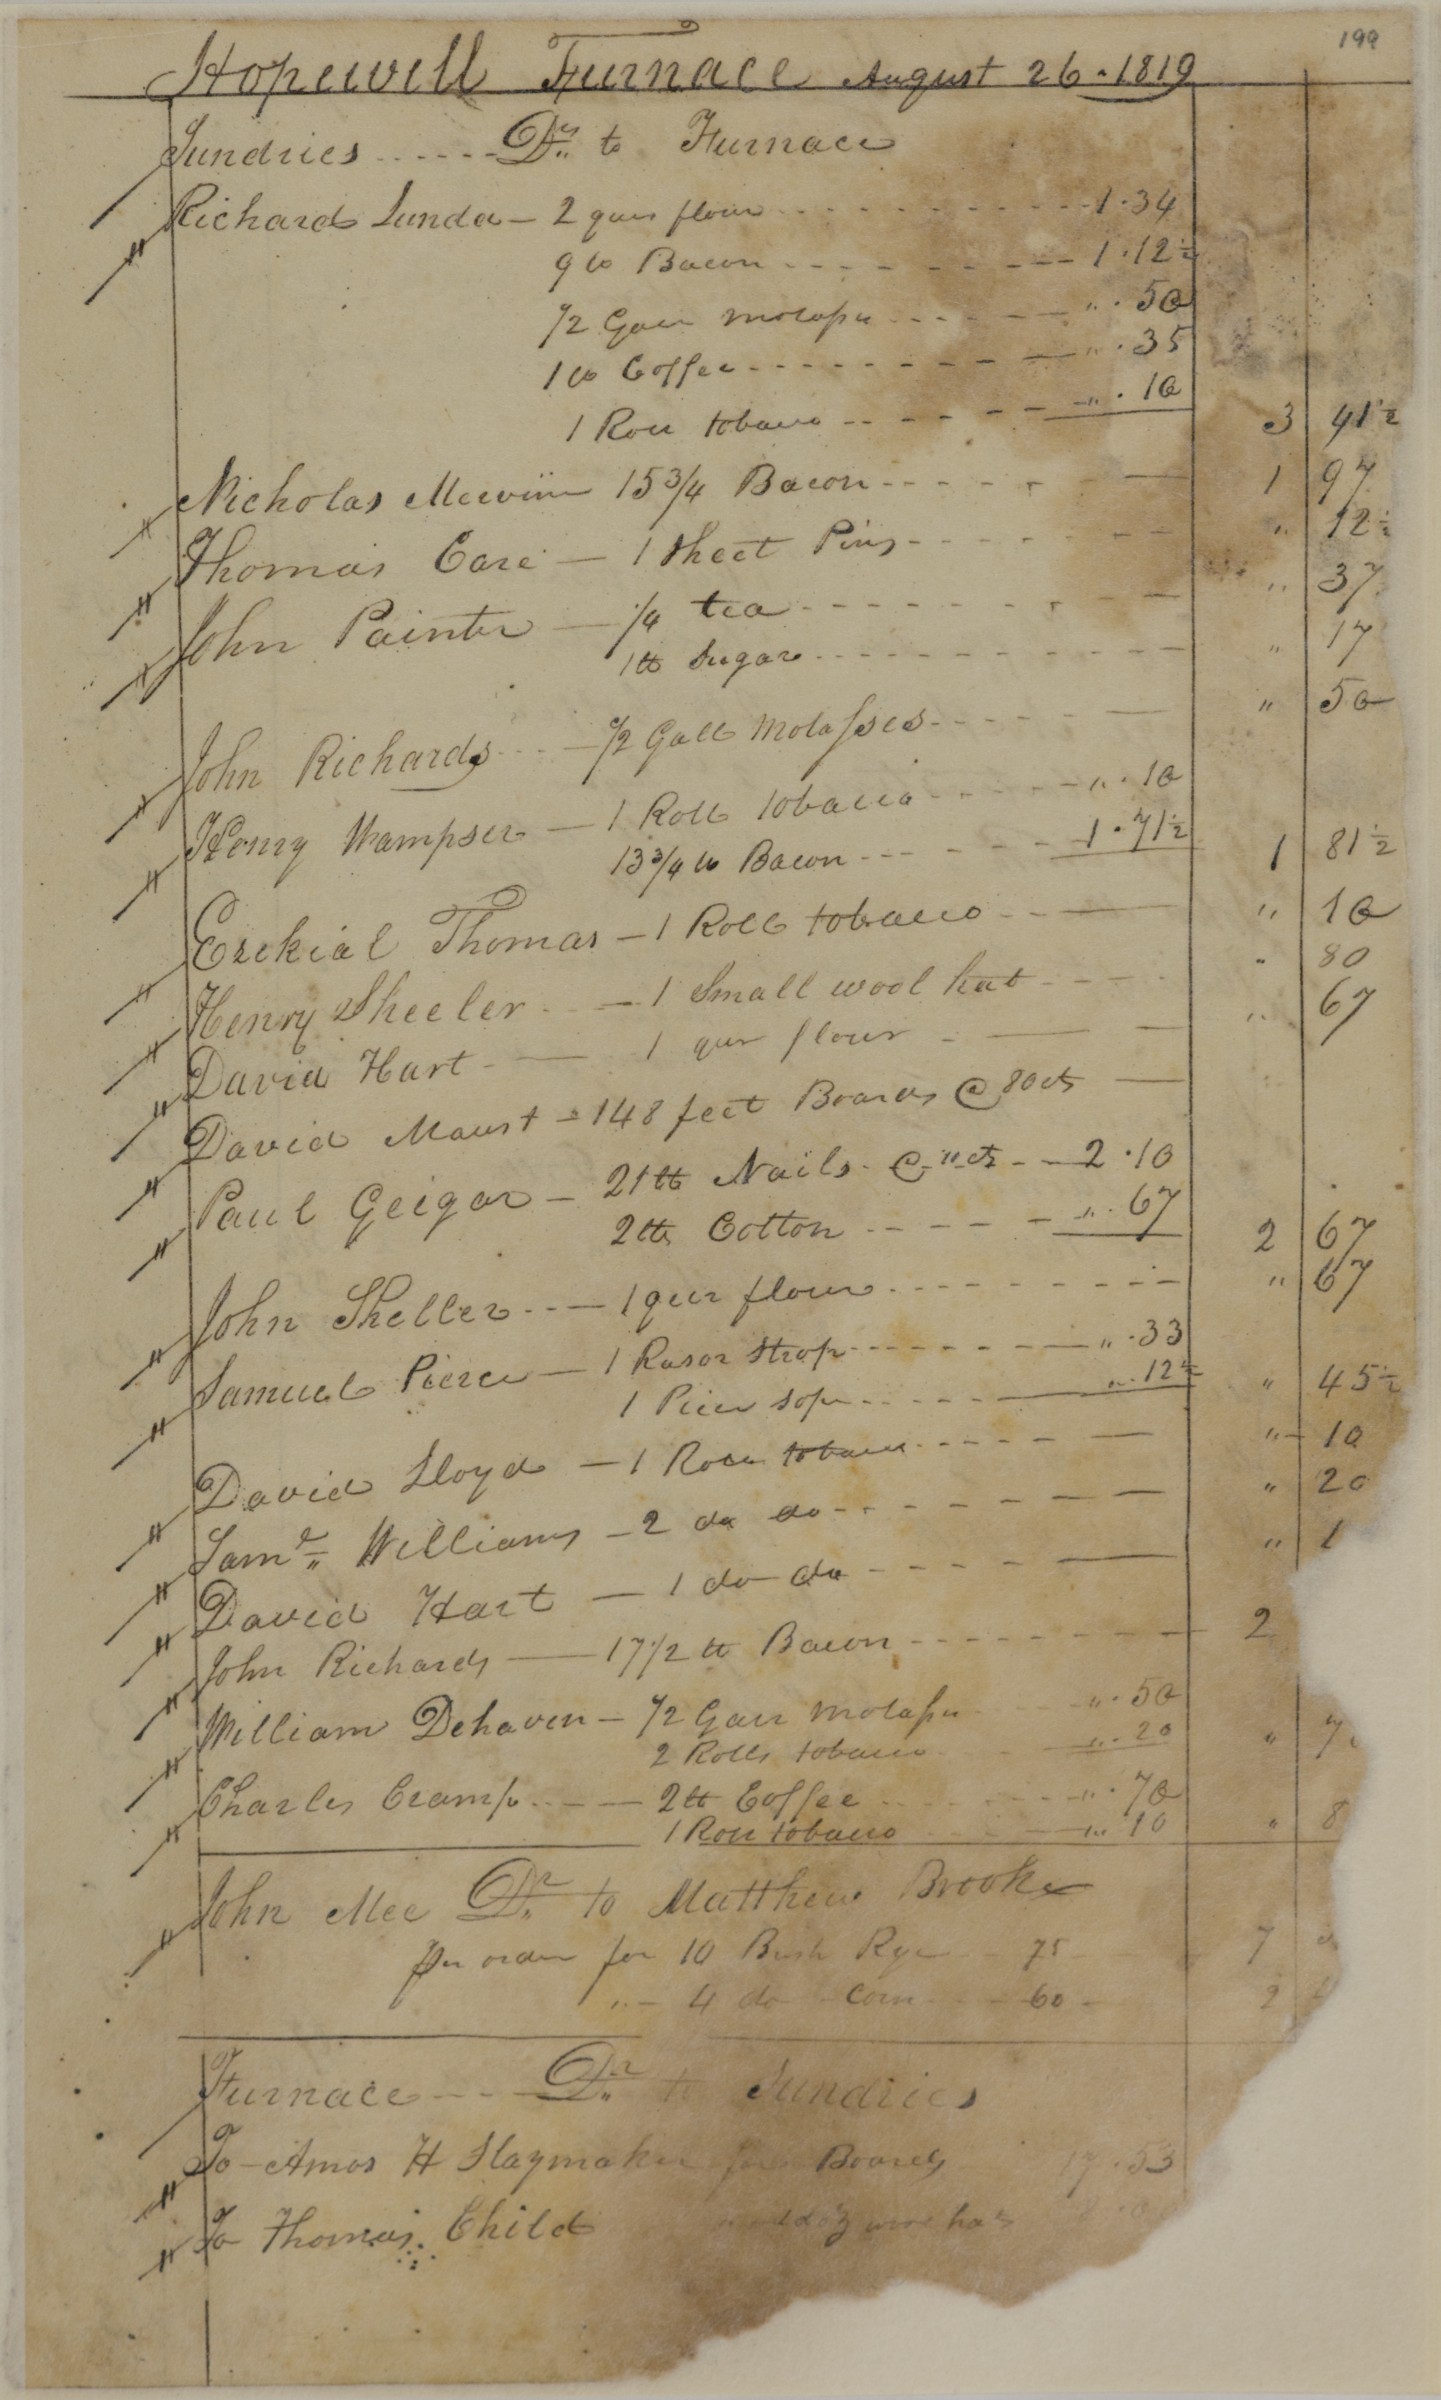 199
Hopewell Furnace August 26. 1819
Sundries Drs to Furnace
Richard Lunda 2 qurs flour 1.34
9 lb Bacon 1.12½
1/2 Gall molasses " .50
1 lb Coffee " .35
1 Roll tobacco " .10 3 41½
Nicholas 15 3/4 Bacon 1 97
Thomas Care 1 Sheet Pins " 12½
John Painter 1/4 tea " 37
1 lb Sugar " 17
John Richards 1/2 Gall molasses " 50
Henry Wampser 1 Roll tobacco " .10
13 3/4 lb Bacon 1.71½ 1 81½
Ezekial Thomas 1 Roll tobacco " 10
Henry Sheeler 1 Small wool hat " 80
David Hart 1 qur flour " 67
David Maust 148 feet Boards @ 80 cts
Paul Geigar 21 lb Nails @ cts 2.10
2 lb Cotton " .67 2 67
John Sheller 1 qur flour " 67
Samuel Pierce 1 Rasor Strop " .33
1 Piece sope " .12½ " 45½
David Lloyd 1 Roll tobacco " 10
Saml Williams 2 do do " 20
David Hart 1 do do " 1
John Richards 17 1/2 lb Bacon 2
William Dehaven 1/2 Gall molasses " .50
2 Rolls tobacco " .20 " 7
Charles Cramp 2 lb Coffee " .70
1 Roll tobacco " 10 " 8
John Mee Dr to Matthew Brooke
per order for 10 Bush Rye 75 7
" 4 do Corn 60 2
Furnace Dr to Sundries
To Amos H Slaymaker for Boards 17.53
To Thomas Child doz wool hats